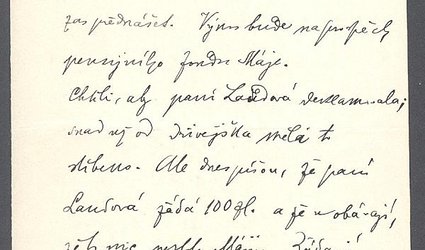 zas přednášet. Výnos bude na prospěch
pensijního fondu Máje.
Chtěli, aby paní Laudová deklamovala;
snad už od dřívějška měla to
slíbeno. Ale dnes píšou, že paní
Laudová žádá 100 zl. a že se obávají,
že nic Máji